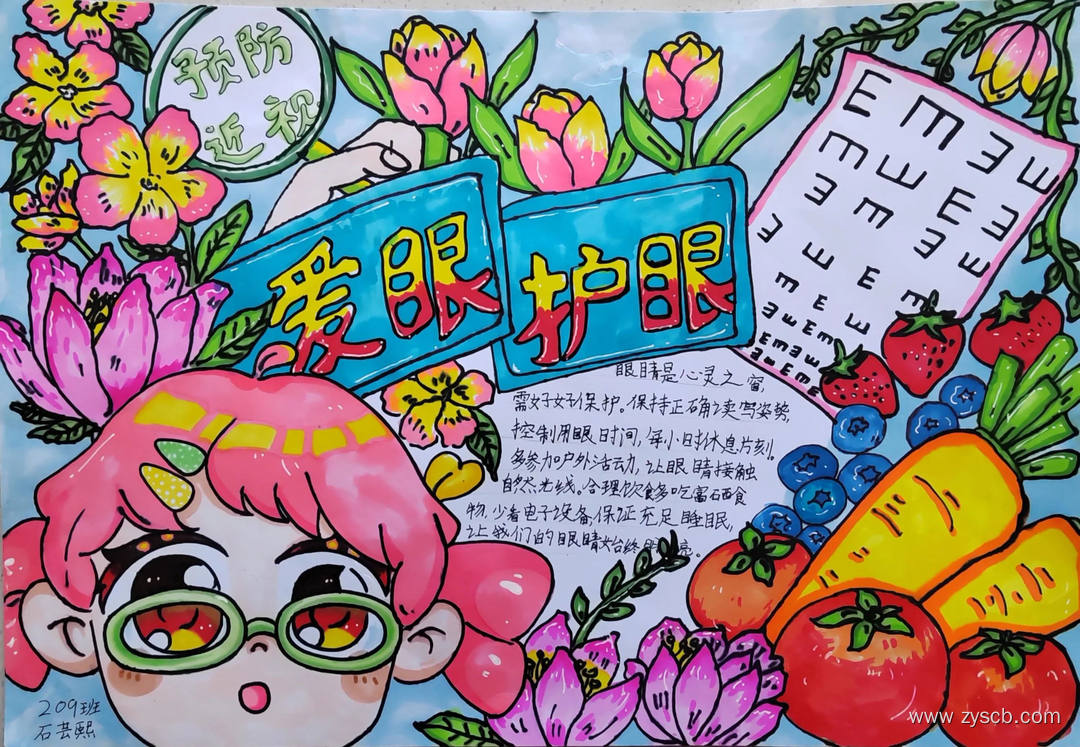 预防
近视
爱眼
护眼
E m ヨ E
m E E ヨ
ヨ m ヨ E
ヨ E E m
m E E
ヨ E E m
E m E ヨ E
眼睛是心灵之窗,
需好好保护。保持正确读写姿势,
控制用眼时间,每小时休息片刻。
多参加户外活动,让眼睛接触
自然光线。合理饮食多吃富硒食
物,少看电子设备,保证充足睡眠,
让我们的眼睛始终明亮。
209班
石芸熙
www.zyscb.com